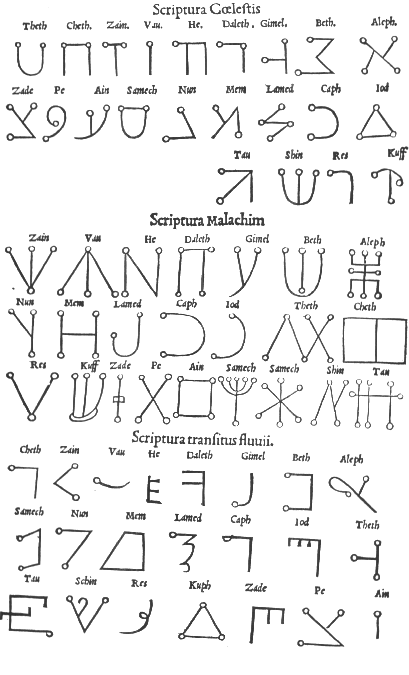 Scriptura Cœlestis
Theth Cheth. Zain. Vau. He. Daleth. Gimel. Beth. Aleph.
Zade Pe Ain Samech Nun Mem Lamed Caph Iod
Tau Shin Res Kuff
Scriptura Malachim
Zain Vau He Daleth Gimel Beth Aleph
Nun Mem Lamed Caph Iod Theth Cheth
Res Kuff Zade Pe Ain Samech Samech Shin Tau
Scriptura transitus fluuii.
Cheth Zain Vau He Daleth Gimel Beth Aleph
Samech Nun Mem Lamed Caph Iod Theth
Tau Schin Res Kuph Zade Pe Ain